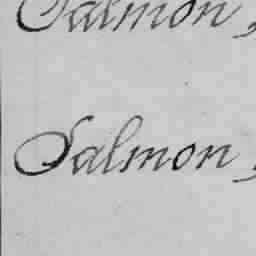 Salmon,
Salmon,